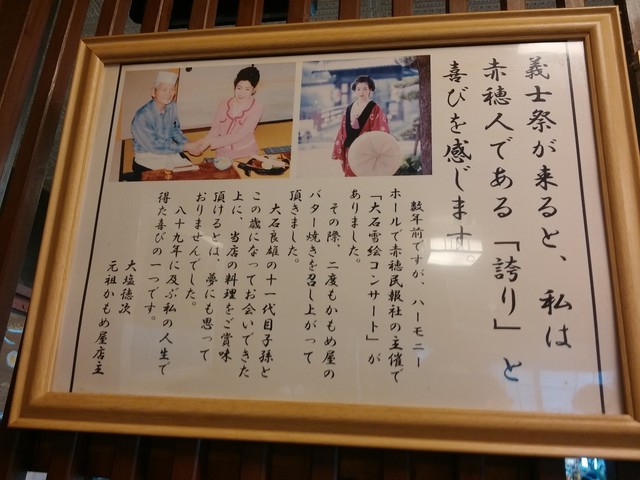 義士祭が来ると、私は
赤穂人である「誇り」と
喜びを感じます。
数年前ですが、ハーモニー
ホールで赤穂民報社の主催で
「大石雪絵コンサート」が
ありました。
その際、二度もかもめ屋の
バター焼きを召し上がって
頂きました。
大石良雄の十一代目子孫と
この歳になってお会いできた
上に、当店の料理をご賞味
頂けるとは、夢にも思って
おりませんでした。
八十九年に及ぶ私の人生で
得た喜びの一つです。
大塩徳次
元祖かもめ屋店主